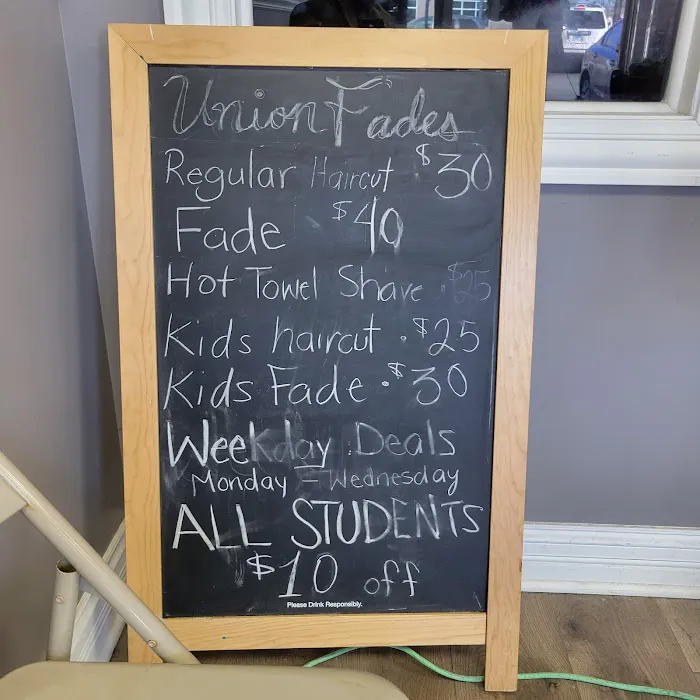 Union Fades
Regular Haircut $30
Fade $40
Hot Towel Shave . $25
Kids haircut . $25
Kids Fade . $30
Weekday Deals
Monday - Wednesday
ALL STUDENTS
$10 off
Please Drink Responsibly.